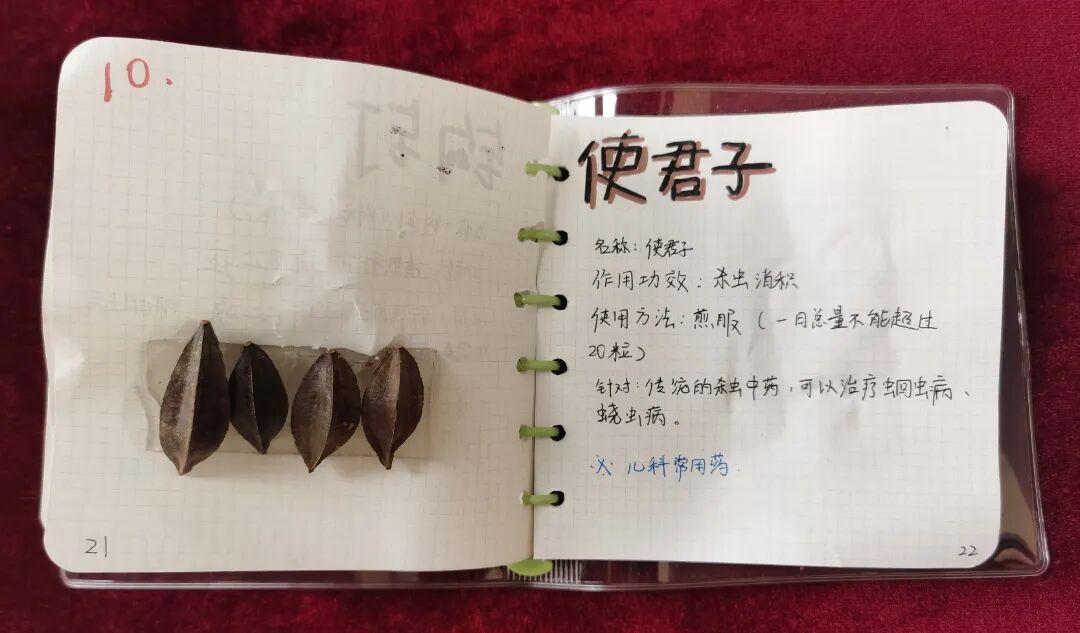 10.
21
使君子
名称：使君子
作用功效：杀虫消积
使用方法：煎服（一日总量不能超过
20粒）
针对：传统的杀虫中药，可以治疗蛔虫病、
蛲虫病。
※ 儿科常用药.
22